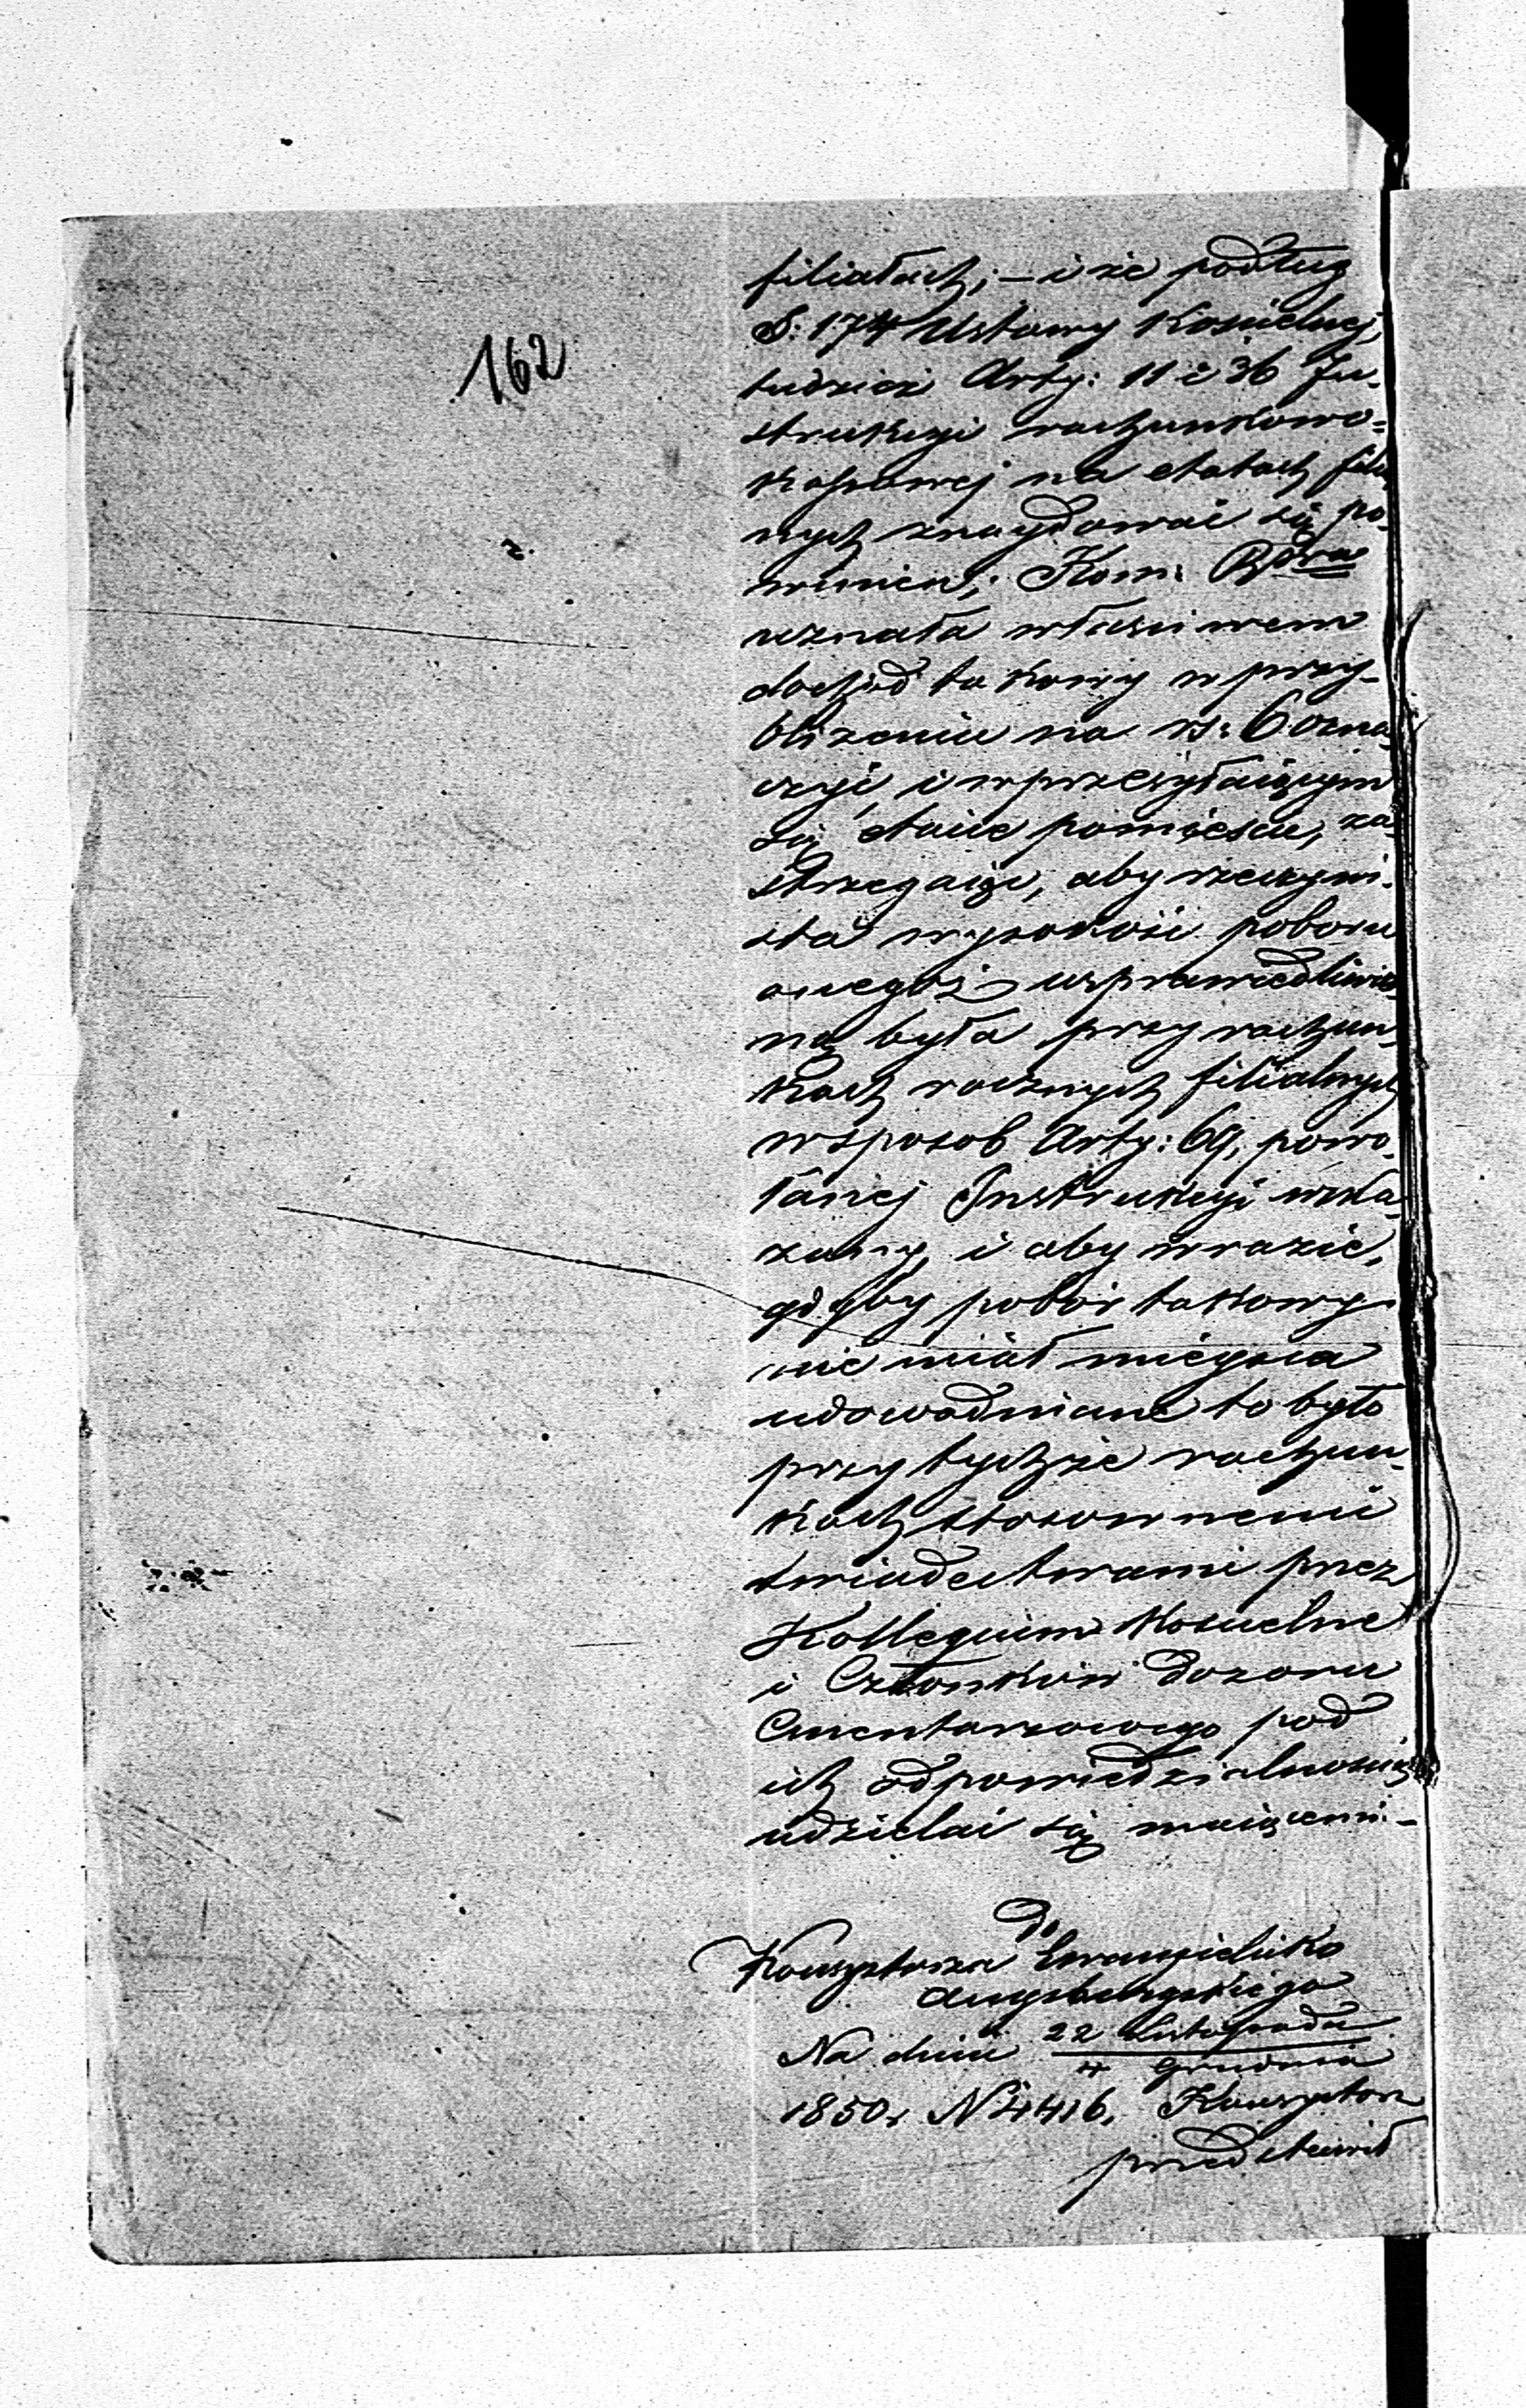 162
filiałach; – i że podług
§. 174 Ustawy Kościelnej,
tudzież Arty: 11 i 36 In-
strukcyi rachunkowo-
Kassowej na etatach filial
nych znaydować się po-
winien; Kom: Rządowa
uznała właściwem
dochód takowy w przy-
bliżeniu na rs: 6 ozna-
czyć, i w przesyłaiącym
się etacie pomieścić, za-
strzegaiąc, aby rzeczywi-
sta wysokość poboru
onegoż usprawiedliwio-
ną była przy rachun-
kach rocznych filialnych
w sposób Arty: 69, powo-
łanej Instrukcyi wska-
zany, i aby w razie,
gdyby pobór takowy
nie miał mieysca
udowodnione to było
przy tychże rachun-
kach stosownemi
świadectwami przez
Kollegium Kościelne
i Członków Dozoru
Cmentarzowego pod
ich odpowiedzialnością
udzielać się maiącemi. –
Do
Konsystorza Ewangielicko
Augsburgskiego
Na dniu 22 Listopada
4 Grudnia
1850 r. N 4416, Konsystorz
przedstawił